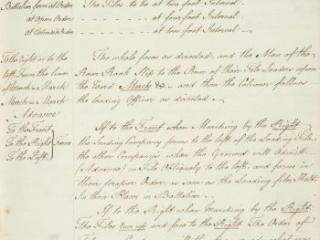 Battalion form at Order
at Open Order
at Extended Order
The Files to be at two foot Interval.
at four foot Interval
at ten foot Interval.
To the Right or to the
Left Form the line
March
March
Advance
To the Front
To the Right Form
To the Left
The whole form as directed, and the Men of the
Rear Rank Slip to the Rear of their File Leaders upon
the word March &c. and then the Column follow
the leading Officer as directed.
If to the Front when Marching by the Right
the leading Company forms to the left of the leading File,
the other Companys when the Ground will Admit
(Advance) in File Obliquely to the left, and forms in
their proper Order as soon as the leading files Halt
In their Place in Battalion.
If to the Right when marching by the Right
The Files and form to the Right The Order of